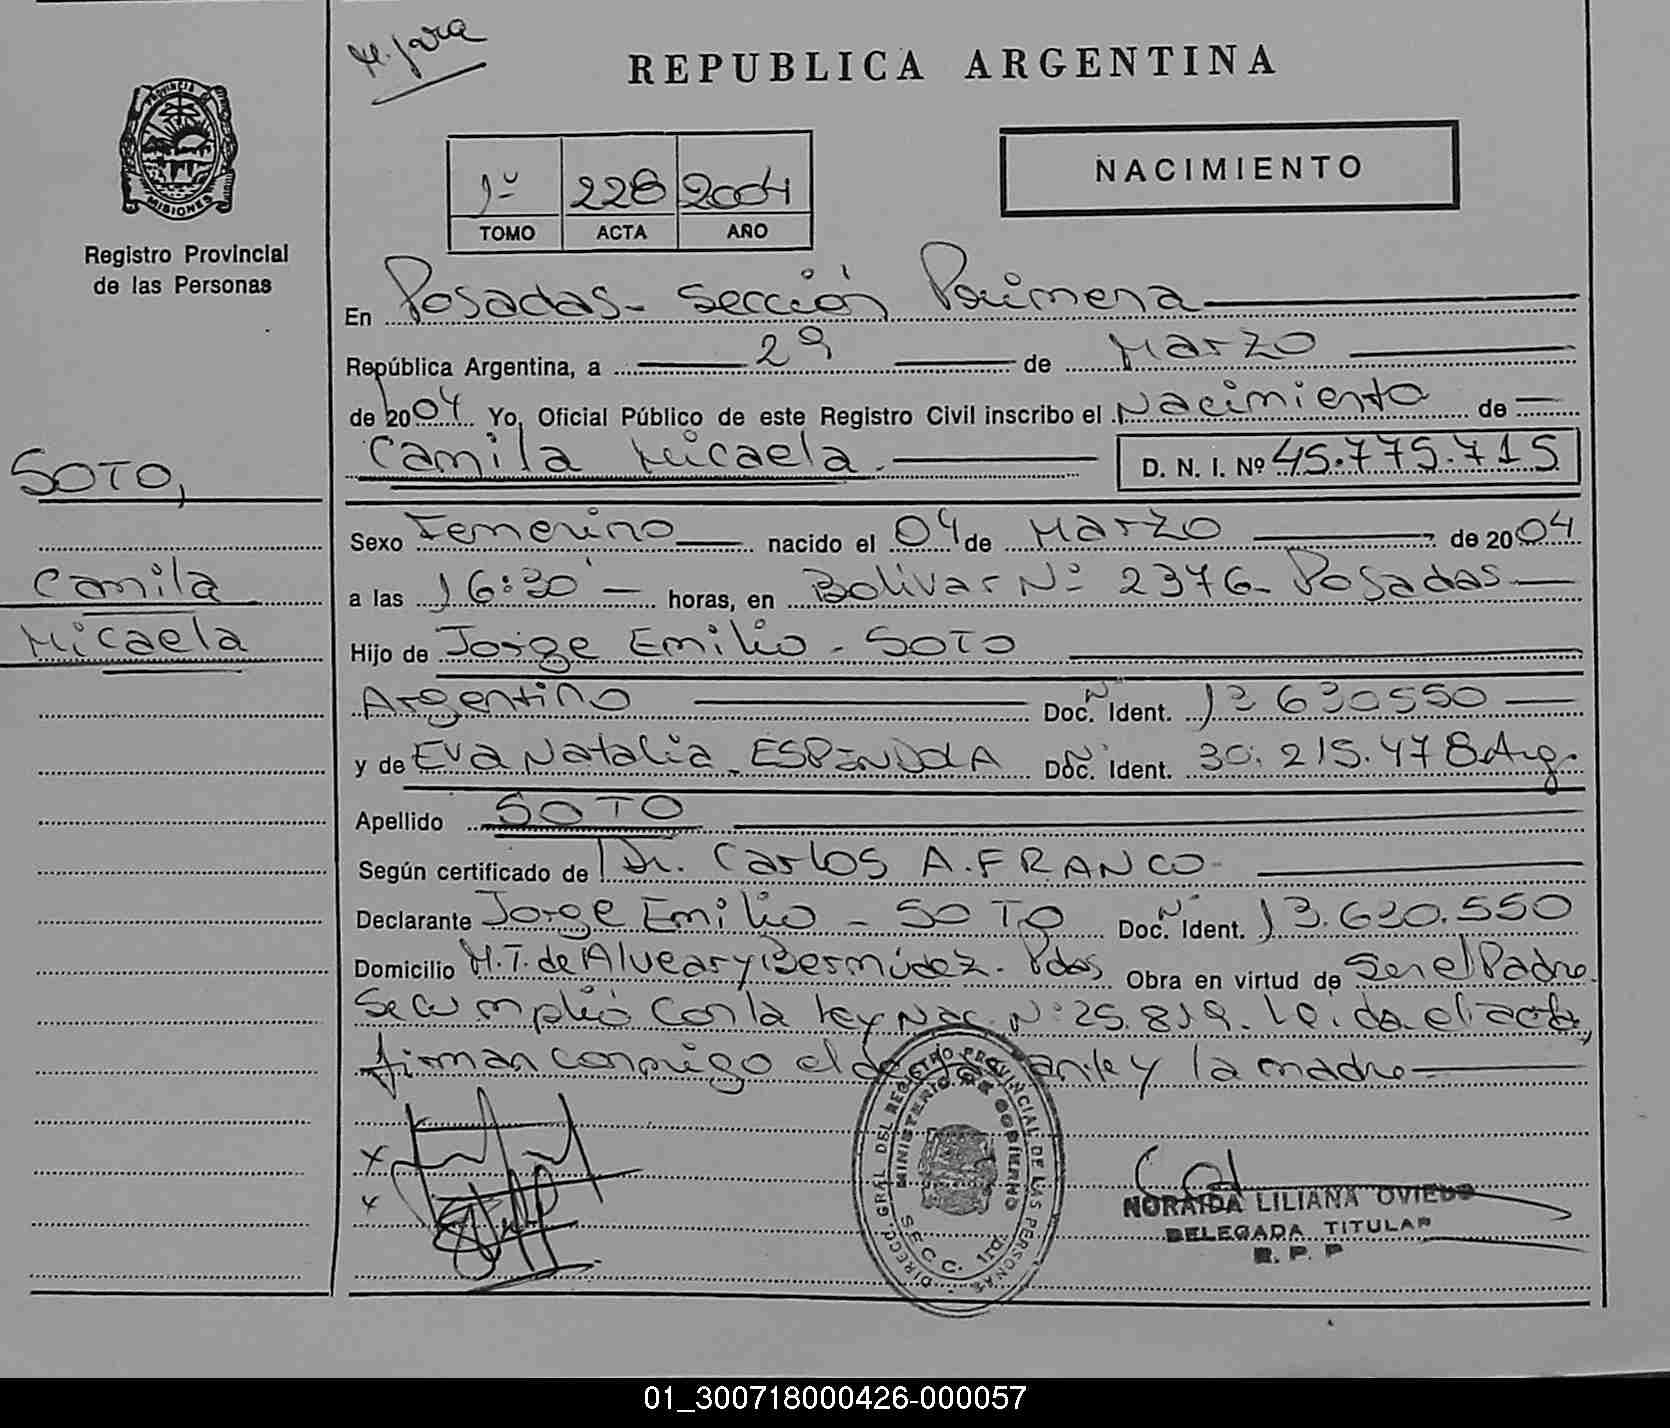 H. Jara
REPUBLICA ARGENTINA
PROVINCIA DE
MISIONES
Registro Provincial
de las Personas
NACIMIENTO
1º 228 2004
TOMO ACTA AÑO
En Posadas - Sección Primera
República Argentina, a 29 de Marzo
de 2004 Yo, Oficial Público de este Registro Civil inscribo el Nacimiento de
Camila Micaela. D. N. I. Nº 45.775.715
SOTO,
Camila
Micaela
Sexo Femenino nacido el 04 de Marzo de 2004
a las 16:30 horas, en Bolivar Nº 2376 - Posadas
Hijo de Jorge Emilio - SOTO
Argentino Doc. Nº Ident. 13 630550
y de Eva Natalia - ESPINDOLA Doc. Nº Ident. 30.215.478 Arg.
Apellido SOTO
Según certificado de Dr. Carlos A. FRANCO
Declarante Jorge Emilio - SOTO Doc. Nº Ident. 13.630.550
Domicilio M.T. de Alvear y Bermúdez - Pdas Obra en virtud de Ser el Padre
Se cumplió con la Ley Nac. Nº 25.819. Leída el acta,
firman conmigo el y la madre
x
x
DIRECC. GRAL DEL REGISTRO PROVINCIAL DE LAS PERSONAS
MINISTERIO DE GOBIERNO
SECC. 1ra.
NORAIDA LILIANA OVIEDO
DELEGADA TITULAR
R. P. P
01_300718000426-000057